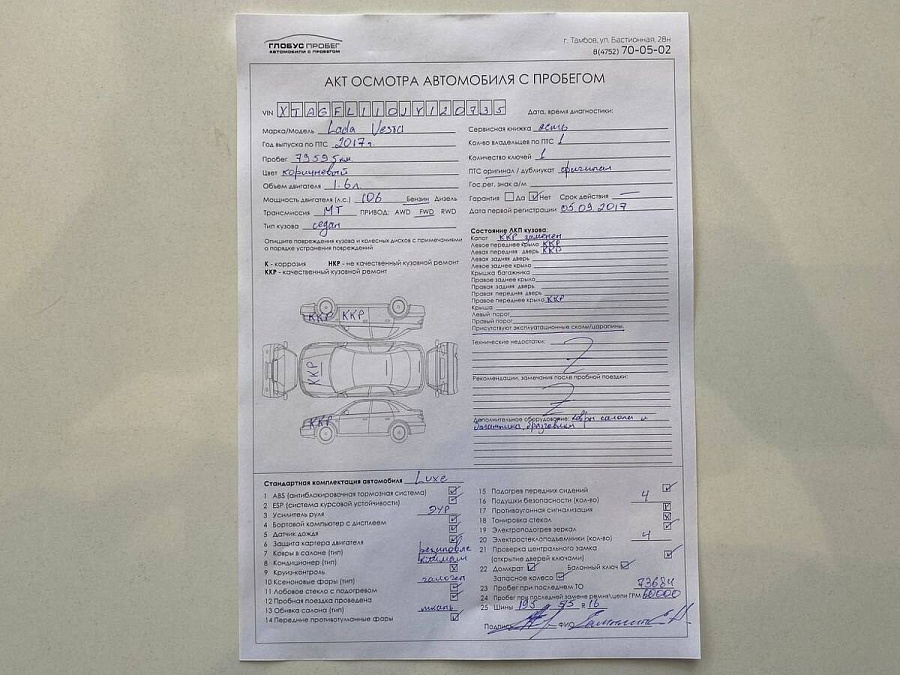 ГЛОБУС ПРОБЕГ
АВТОМОБИЛИ С ПРОБЕГОМ
г. Тамбов, ул. Бастионная, 28н
8(4752) 70-05-02
АКТ ОСМОТРА АВТОМОБИЛЯ С ПРОБЕГОМ
VIN XTAGFL110JY120735
Дата, время диагностики:
Марка/Модель Lada Vesta
Год выпуска по ПТС 2017г.
Пробег 79595 км
Цвет коричневый
Объем двигателя 1.6л
Мощность двигателя (л.с.) 106 Бензин Дизель
Трансмиссия МТ ПРИВОД: AWD FWD RWD
Тип кузова седан
Сервисная книжка есть
Кол-во владельцев по ПТС 1
Количество ключей 1
ПТС оригинал / дубликат оригинал
Гос.рег. знак а/м
Гарантия Да Нет Срок действия —
Дата первой регистрации 05.09.2017
Опишите повреждения кузова и колесных дисков с примечаниями
о порядке устранения повреждений
К - коррозия НКР - не качественный кузовной ремонт
ККР - качественный кузовной ремонт
ККР ККР
ККР
ККР
Состояние ЛКП кузова:
Капот ККР заменен
Левое переднее крыло ККР
Левая передняя дверь ККР
Левая задняя дверь
Левое заднее крыло
Крышка багажника
Правое заднее крыло
Правая задняя дверь
Правая передняя дверь
Правое переднее крыло ККР
Крыша
Левый порог
Правый порог
Присутствуют эксплуатационные сколы/царапины.
Технические недостатки:
Рекомендации, замечания после пробной поездки:
Дополнительное оборудование: ковры салона и
багажника, брызговики
Стандартная комплектация автомобиля Luxe
1 ABS (антиблокировочная тормозная система)
2 ESP (система курсовой устойчивости)
3 Усилитель руля ЭУР
4 Бортовой компьютер с дисплеем
5 Датчик дождя
6 Защита картера двигателя
7 Ковры в салоне (тип) резиновые
8 Кондиционер (тип) климат
9 Круиз-контроль
10 Ксеноновые фары (тип) галоген
11 Лобовое стекло с подогревом
12 Пробная поездка проведена
13 Обивка салона (тип) ткань
14 Передние противотуманные фары
15 Подогрев передних сидений
16 Подушки безопасности (кол-во) 4
17 Противоугонная сигнализация
18 Тонировка стекол
19 Электроподогрев зеркал
20 Электростеклоподъемники (кол-во) 4
21 Проверка центрального замка
(открытие дверей ключами)
22 Домкрат Балонный ключ
Запасное колесо
23 Пробег при последнем ТО 73684
24 Пробег при последней замене ремня/цепи ГРМ 60000
25 Шины 195 55 R 16
Подпись ФИО